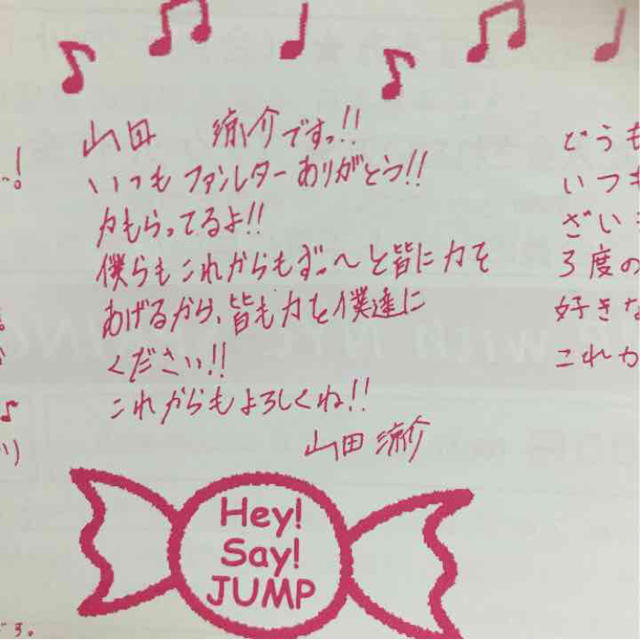 山田 涼介ですっ!!
いつもファンレターありがとう!!
力もらってるよ!!
僕らもこれからもずっ〜と皆に力を
あげるから、皆も力を僕達に
ください!!
これからもよろしくね!!
山田 涼介
どうも
いつも
ざい
3度の
好きな
これか
Hey!
Say!
JUMP